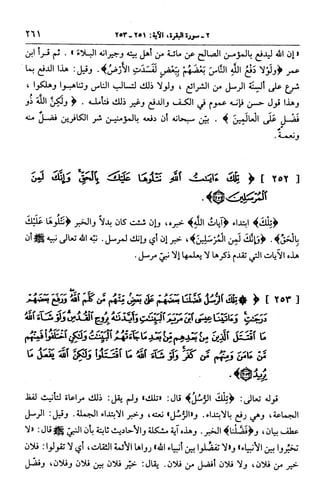 ٢ - سورة البقرة، الآية: ٢٥١ - ٢٥٣
٢٦١
«إن الله ليدفع بالمؤمن الصالح عن مائة من أهل بيته وجيرانه البلاء». ثم قرأ ابن
عمر ﴿وَلَوْلَا دَفْعُ اللَّهِ النَّاسَ بَعْضَهُمْ بِبَعْضٍ لَفَسَدَتِ الْأَرْضُ﴾. وقيل: هذا الدفع بما
شرع على ألسنة الرسل من الشرائع، ولولا ذلك لتسالب الناس وتناهبوا وهلكوا،
وهذا قول حسن فإنه عموم في الكف والدفع وغير ذلك فتأمله. ﴿وَلَكِنَّ اللَّهَ ذُو
فَضْلٍ عَلَى الْعَالَمِينَ﴾. بيّن سبحانه أن دفعه بالمؤمنين شر الكافرين فضل منه
ونعمة.
[٢٥٢] ﴿تِلْكَ آيَاتُ اللَّهِ نَتْلُوهَا عَلَيْكَ بِالْحَقِّ وَإِنَّكَ لَمِنَ
الْمُرْسَلِينَ﴾.
﴿تِلْكَ﴾ ابتداء ﴿آيَاتُ اللَّهِ﴾ خبره، وإن شئت كان بدلاً والخبر ﴿نَتْلُوهَا عَلَيْكَ
بِالْحَقِّ﴾. ﴿وَإِنَّكَ لَمِنَ الْمُرْسَلِينَ﴾، خبر إن أي وإنك لمرسل. نبّه الله تعالى نبيه ﷺ أن
هذه الآيات التي تقدم ذكرها لا يعلمها إلا نبي مرسل.
[٢٥٣] ﴿تِلْكَ الرُّسُلُ فَضَّلْنَا بَعْضَهُمْ عَلَى بَعْضٍ مِنْهُمْ مَنْ كَلَّمَ اللَّهُ وَرَفَعَ بَعْضَهُمْ
دَرَجَاتٍ وَآتَيْنَا عِيسَى ابْنَ مَرْيَمَ الْبَيِّنَاتِ وَأَيَّدْنَاهُ بِرُوحِ الْقُدُسِ وَلَوْ شَاءَ اللَّهُ
مَا اقْتَتَلَ الَّذِينَ مِنْ بَعْدِهِمْ مِنْ بَعْدِ مَا جَاءَتْهُمُ الْبَيِّنَاتُ وَلَكِنِ اخْتَلَفُوا فَمِنْهُمْ
مَنْ آمَنَ وَمِنْهُمْ مَنْ كَفَرَ وَلَوْ شَاءَ اللَّهُ مَا اقْتَتَلُوا وَلَكِنَّ اللَّهَ يَفْعَلُ مَا
يُرِيدُ﴾.
قوله تعالى: ﴿تِلْكَ الرُّسُلُ﴾ قال: «تلك» ولم يقل: ذلك مراعاة لتأنيث لفظ
الجماعة، وهي رفع بالابتداء. و«الرُّسُل» نعته، وخبر الابتداء الجملة. وقيل: الرسل
عطف بيان، و﴿فَضَّلْنَا﴾ الخبر. وهذه آية مشكلة والأحاديث ثابتة بأن النبي ﷺ قال: «لا
تخيّروا بين الأنبياء» و«لا تفضلوا بين أنبياء الله» رواها الأئمة الثقات، أي لا تقولوا: فلان
خير من فلان، ولا فلان أفضل من فلان. يقال: خيّر فلان بين فلان وفلان، وفضّل